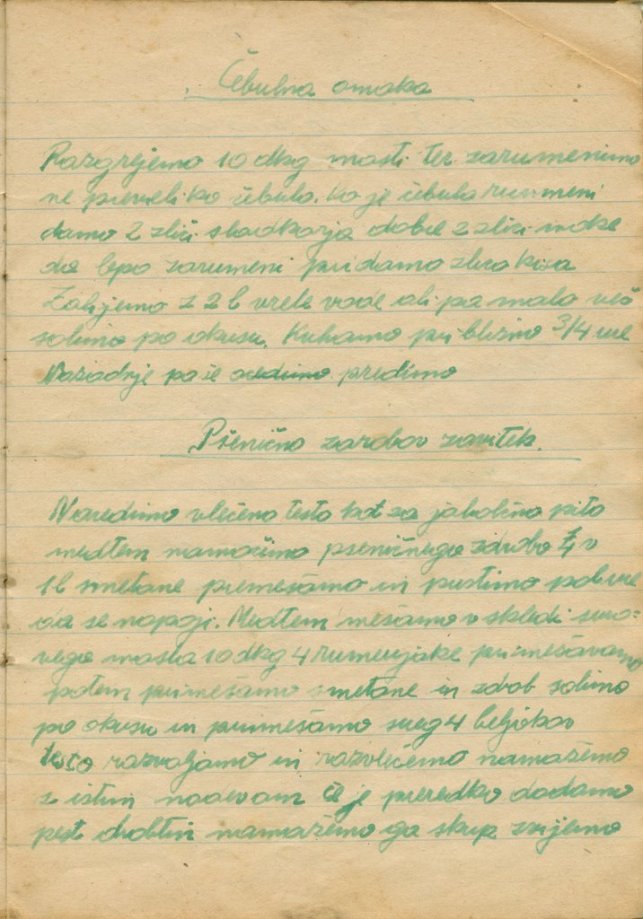 Čebulna omaka
Razgrejemo 10 dkg masti ter zarumenimo
ne preveliko čebulo. Ko je čebula rumeni
damo 2 žlici sladkorja dobre 2 žlici moke
da lepo zarumeni pridamo žlico kisa
Zalijemo z 2 l vrele vode ali pa malo več
solimo po okusu. Kuhamo približno 3/4 ure
Nazadnje pa še predimo
Pšenično zdrobov zavitek.
Naredimo vlečeno testo kot za jabolčno pito
medtem namočimo pšeničnega zdroba 1/4 v
1 l smetane premešamo in pustimo pol ure
da se napoji. Medtem mešamo v skledi suro-
vega masla 10 dkg 4 rumenjake primešavamo
potem primešamo smetane in zdrob solimo
po okusu in primešamo sneg 4 beljakov
testo razvaljamo in razvlečemo namažemo
z istim nadevom če je preredko dodamo
pest drobtin namažemo ga skup zvijemo